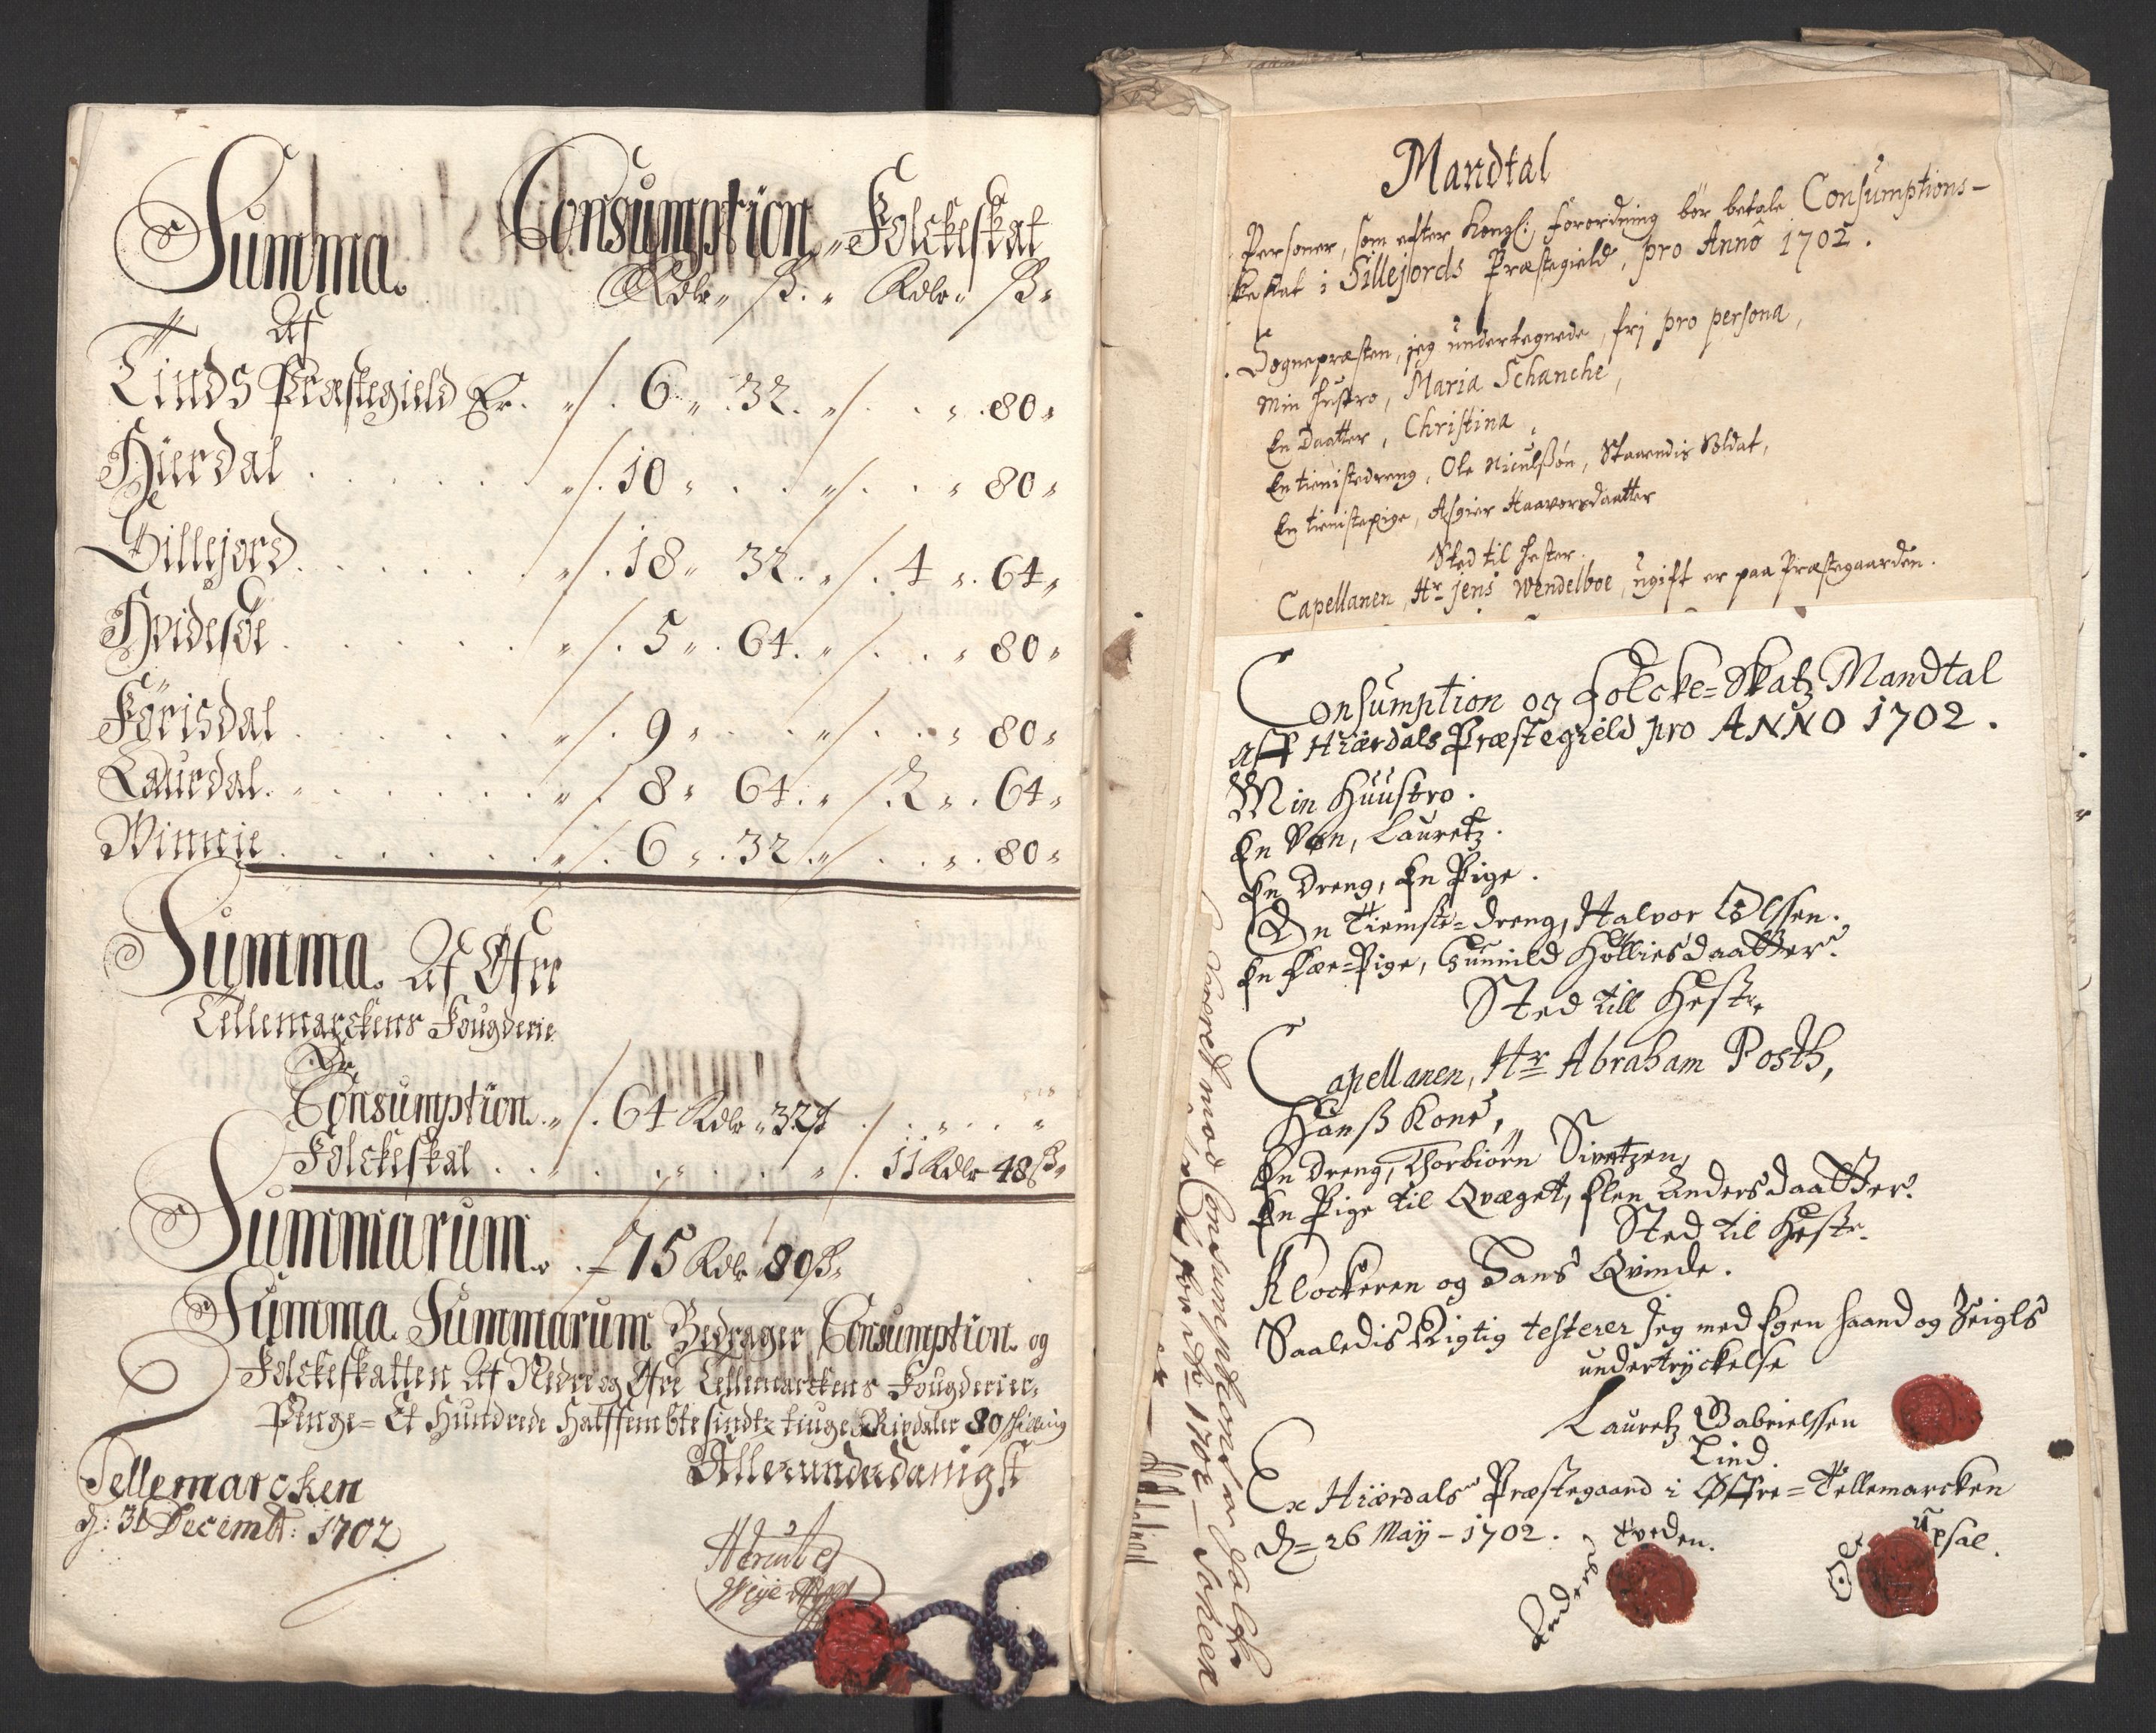 Summa. Consumption „ Folckeskat
Rdlr „ ß. „ Rdlr „ ß „
Af
Tinds Præstegield Er. „ /. 6 „ 32. „ /. . „ . 80 „
Hierdal . . . . . „ /. 10 „ . . „ /. . „ 80 „
Sillejord . . . . . „ /. 18 „ 32. „ /. 4 „ . 64 „
Hvidesøe . . . . . „ /. 5 „ . 64. „ /. . „ 80 „
Førisdal . . . . . „ /. 9 „ . . „ /. . „ 80 „
Laurdal. . . . . . „ /. 8 „ 64. „ /. 2 „ . 64 „
Winnie . . . . . „ /. 6 „ . 32. „ /. . „ . 80 „
Summa. Af Øfre
Tellemarckens Fougderie
Er
Consumption. „ /. 64 Rdlr „ 32 ß / . „ . . „
Folckeskat . . „ . . „ . . „ /. 11 Rdlr 48 ß „
Summarum. . – 75 Rdlr 80 ß „
Summa Summarum Bedrager Consumption og
Folckeskatten Af Nedre og Øfre Tellemarckens Fougderier,
Penge = Et Hundrede Halffembtesindtz tiuge Rixdaler 80 skilling
Tellemarcken
d: 31 Decembr: 1702
Allerunderdanigst
Mandtal
Personer, som efter Kongl: Forordning bör betale Consumptions-
skat i Sillejords Præstegield, pro Anno 1702.
Sognepræsten, jeg undertegnede, frj pro persona,
Min hustro, Maria Schanche,
En Daatter, Christina,
En tienistedreng, Ole Niculßön, Staaendis Soldat,
En tienistepige, Asgier Haavorsdaatter
Sted til hester.
Capellanen, Hr Jens Wendelboe, ugift er paa Præstegaarden.
Consumption og Folcke=Skatz Mandtal
aff Hiærdals Præstegield pro ANNO 1702.
Min Huustro.
En Søn, Lauretz.
En Dreng, En Pige.
En Tieniste=dreng, Halvor Olssen.
En Fæe=Pige, Gunnild Holliesdaatter.
Sted till Hestr.
Capellanen, Hr Abraham Posth,
Hanß Kone,
En Dreng, Thorbiørn Sivertzen,
En Pige til Qvæget, Elen Andersdaatter.
Sted til Hestr.
Klockeren og Hans Qvinde.
Saaledis Rigtig testerer Jeg med Egen haand og Zeigls
undertryckelse
Lauretz Gabrielssen
Lind.
Ex Hiærdals Præstegaard i Øffre=Tellemarcken
d= 26 Maÿ – 1702.
Anders Tveden.
Ole Upsal.